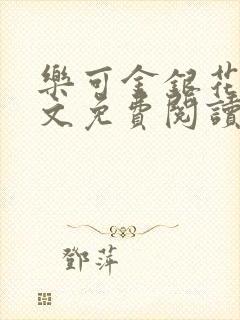 樂可金銀花
文免費閱讀
鄧萍